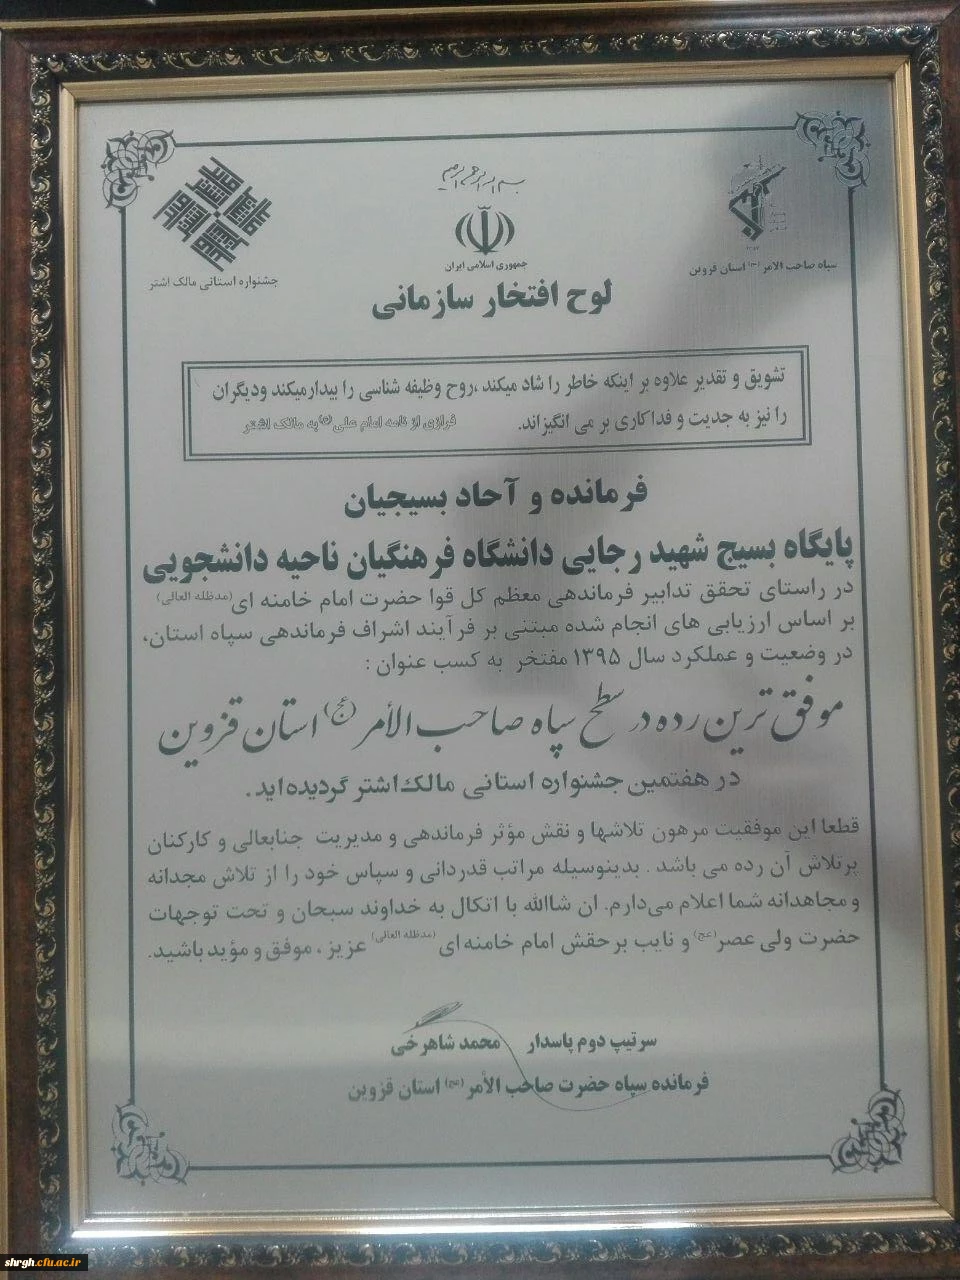 بسم الله الرحمن الرحیم
جمهوری اسلامی ایران
سپاه صاحب الامر (عج) استان قزوین
جشنواره استانی مالک اشتر
لوح افتخار سازمانی
تشویق و تقدیر علاوه بر اینکه خاطر را شاد میکند ،روح وظیفه شناسی را بیدارمیکند ودیگران
را نیز به جدیت و فداکاری بر می انگیزاند. فرازی از نامه امام علی (ع) به مالک اشتر
فرمانده و آحاد بسیجیان
پایگاه بسیج شهید رجایی دانشگاه فرهنگیان ناحیه دانشجویی
در راستای تحقق تدابیر فرماندهی معظم کل قوا حضرت امام خامنه ای (مدظله العالی)
بر اساس ارزیابی های انجام شده مبتنی بر فرآیند اشراف فرماندهی سپاه استان،
در وضعیت و عملکرد سال ۱۳۹۵ مفتخر به کسب عنوان :
موفق ترین رده در سطح سپاه صاحب الأمر (عج) استان قزوین
در هفتمین جشنواره استانی مالک‌اشتر گردیده اید.
قطعا این موفقیت مرهون تلاشها و نقش مؤثر فرماندهی و مدیریت جنابعالی و کارکنان
پرتلاش آن رده می باشد . بدینوسیله مراتب قدردانی و سپاس خود را از تلاش مجدانه
و مجاهدانه شما اعلام می‌دارم. ان شاالله با اتکال به خداوند سبحان و تحت توجهات
حضرت ولی عصر (عج) و نایب برحقش امام خامنه ای (مدظله العالی) عزیز ، موفق و مؤید باشید.
سرتیپ دوم پاسدار محمد شاهرخی
فرمانده سپاه حضرت صاحب الأمر (عج) استان قزوین
shrgh.cfu.ac.ir